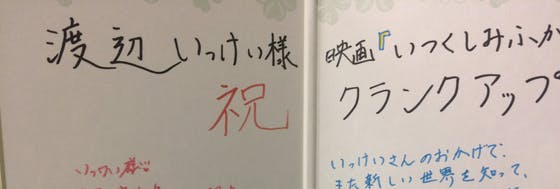 渡辺いっけい様
祝
いっけい様!!
映画『いつくしみふか
クランクアップ
いっけいさんのおかげで
また新しい世界を知って、